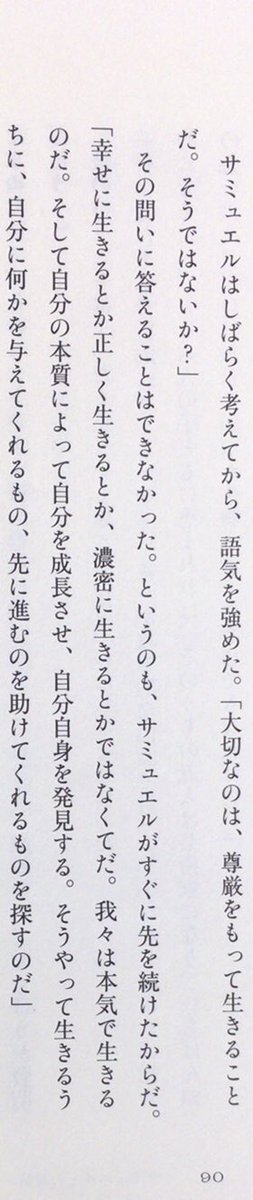 サミュエルはしばらく考えてから、語気を強めた。「大切なのは、尊厳をもって生きること
だ。そうではないか?」
その問いに答えることはできなかった。というのも、サミュエルがすぐに先を続けたからだ。
「幸せに生きるとか正しく生きるとか、濃密に生きるとかではなくてだ。我々は本気で生きる
のだ。そして自分の本質によって自分を成長させ、自分自身を発見する。そうやって生きるう
ちに、自分に何かを与えてくれるもの、先に進むのを助けてくれるものを探すのだ」
90